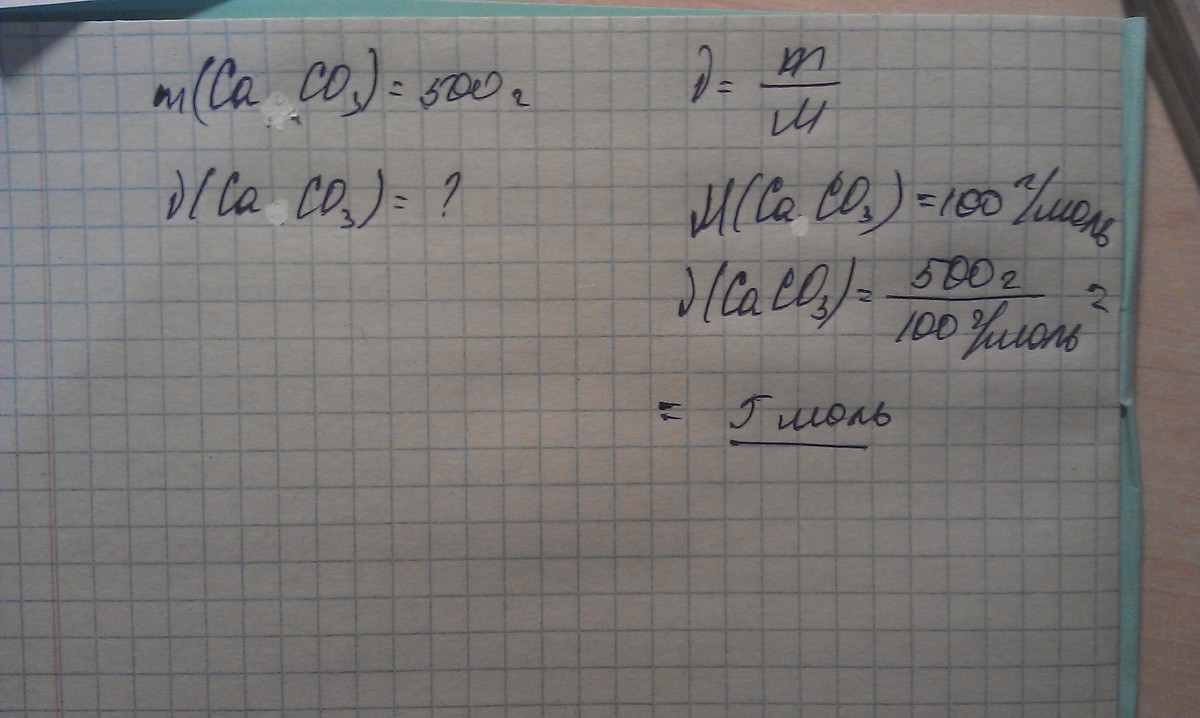 m(Ca CO₃) = 500 г
ν(Ca CO₃) = ?
ν = m/M
M(Ca CO₃) = 100 г/моль
ν(CaCO₃) = 500 г / 100 г/моль =
= 5 моль